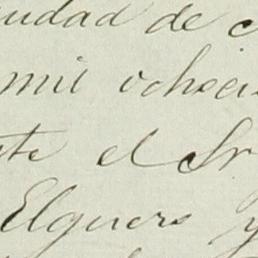 iudad de
mil ochoci
te el Sr
Elguero y